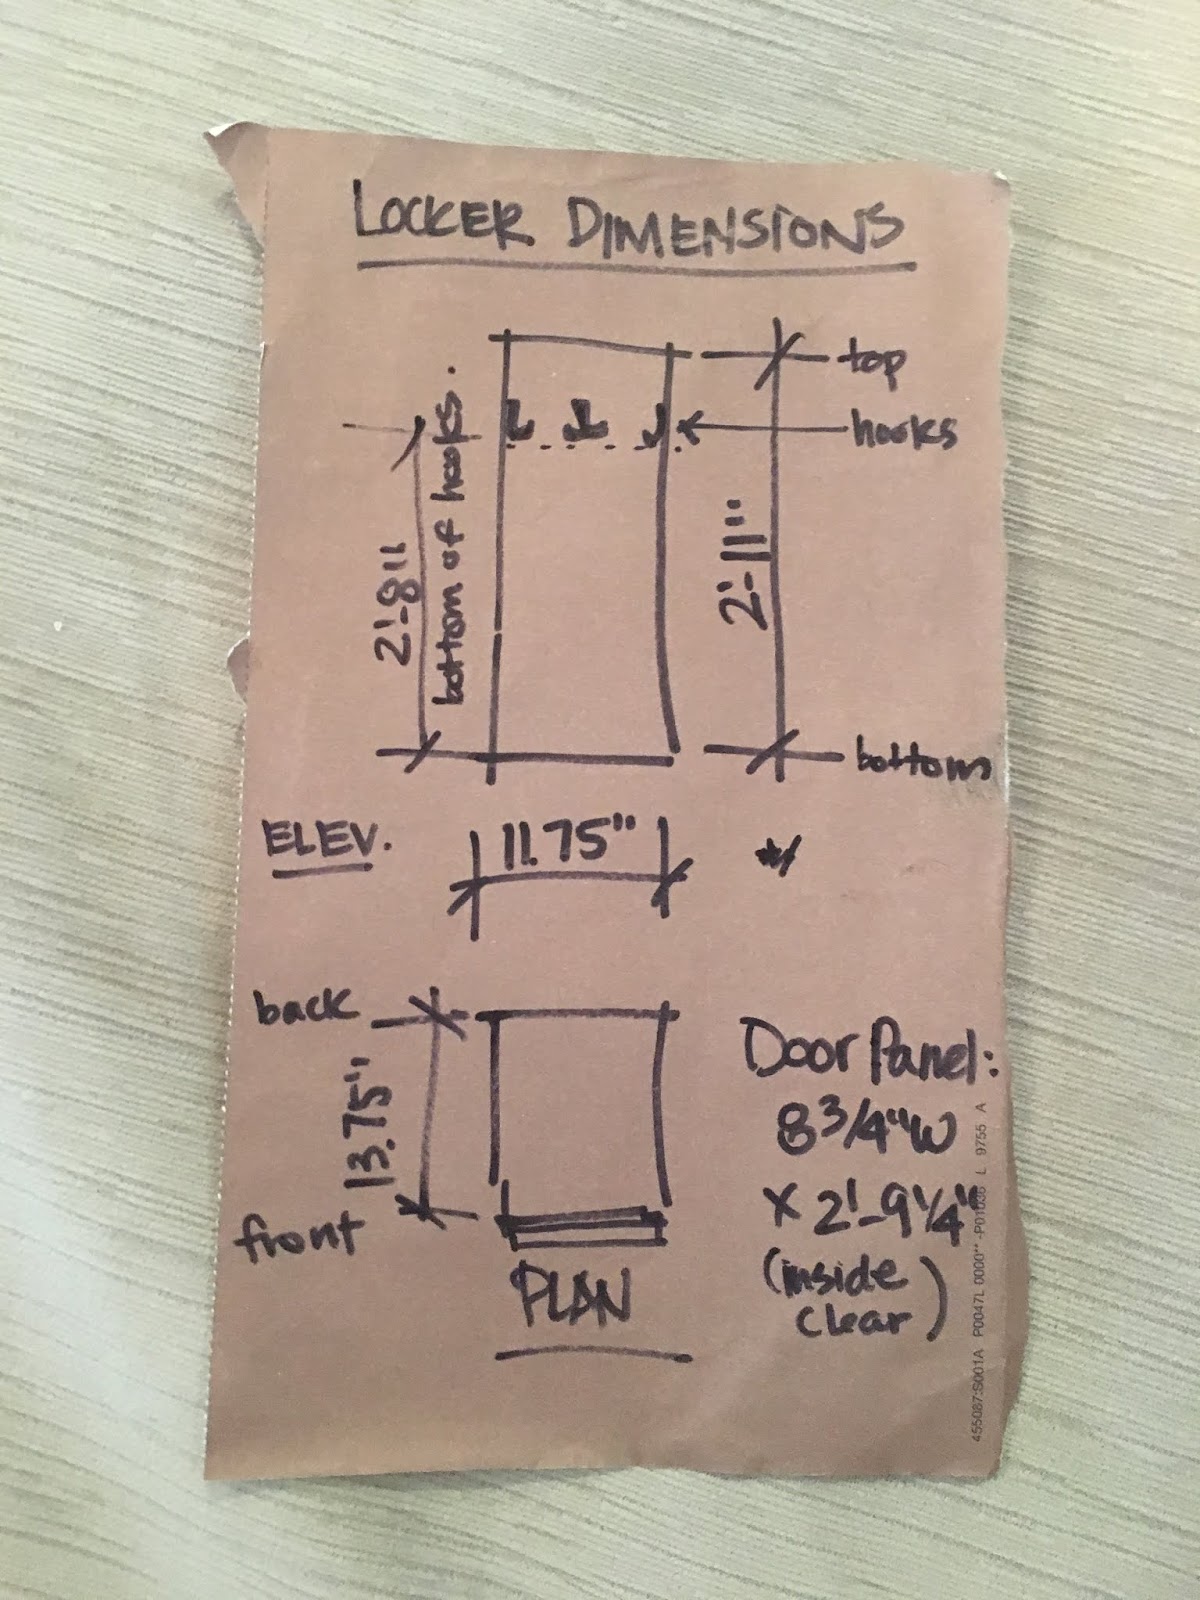 LOCKER DIMENSIONS
top
hooks
2'-8"
bottom of hooks.
2'-11"
bottom
ELEV.
11.75"
back
13.75"
front
PLAN
Door Panel:
8 3/4" W
x 2'-9 1/4"
(inside
clear)
455087:S001A P0047L 0000**-P01036 L 9755 A